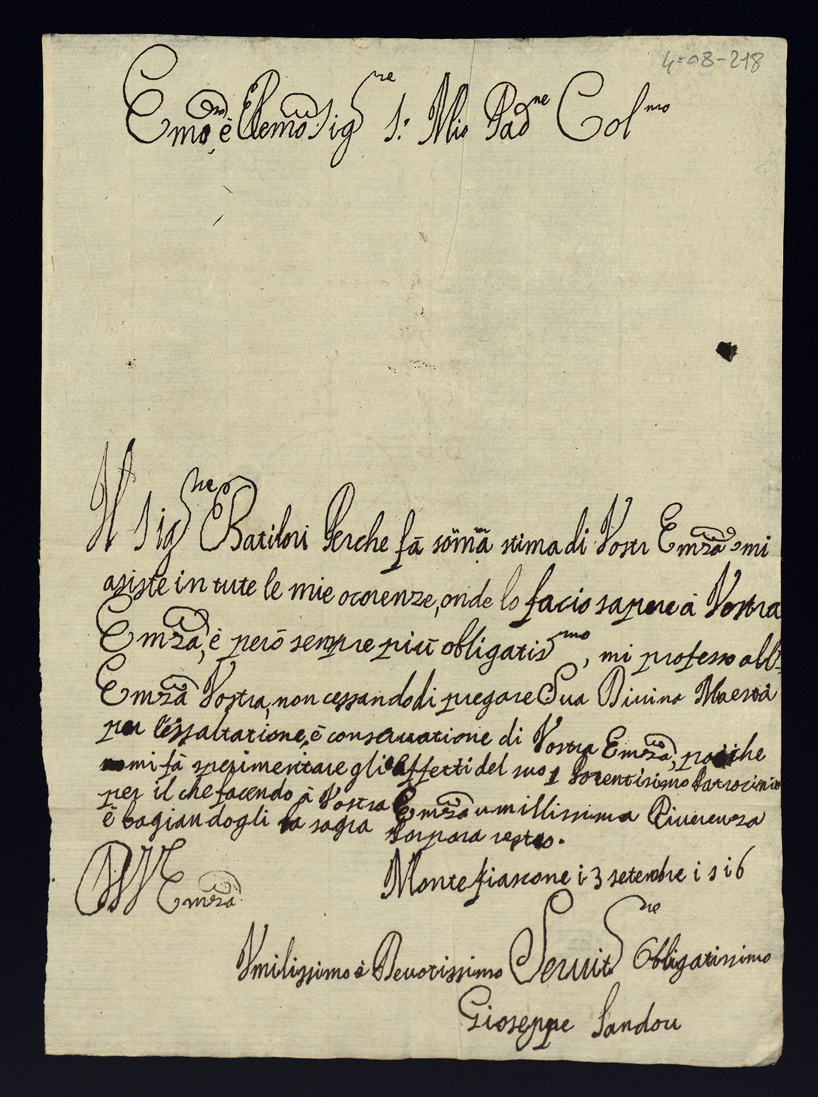 4-08-218
Emo, è Remo Sigre S: Mio Padne Colmo
Il Sigre Batilori Perche fà somà stima di Vostr Emza, mi
asiste in tute le mie ocorenze, onde lo facio sapere à Vostra
Emza, è però sempre più obligatismo, mi professo all
Emza Vostra, non cessando di pregare Sua Divina Maestà
per l'essaltatione, è conseruatione di Vostra Emza, poiche
mi fà sperimentare gli Affetti del suo Patrocinio
per il che facendo à Vostra Emza umillissima Riuerenza
è bagiandogli la sagra Porpora resto.
Emza
Montefiascone i 3 setembre
Vmilissimo è Deuotissimo Seruitre Obligatissimo
Gioseppe Sandou